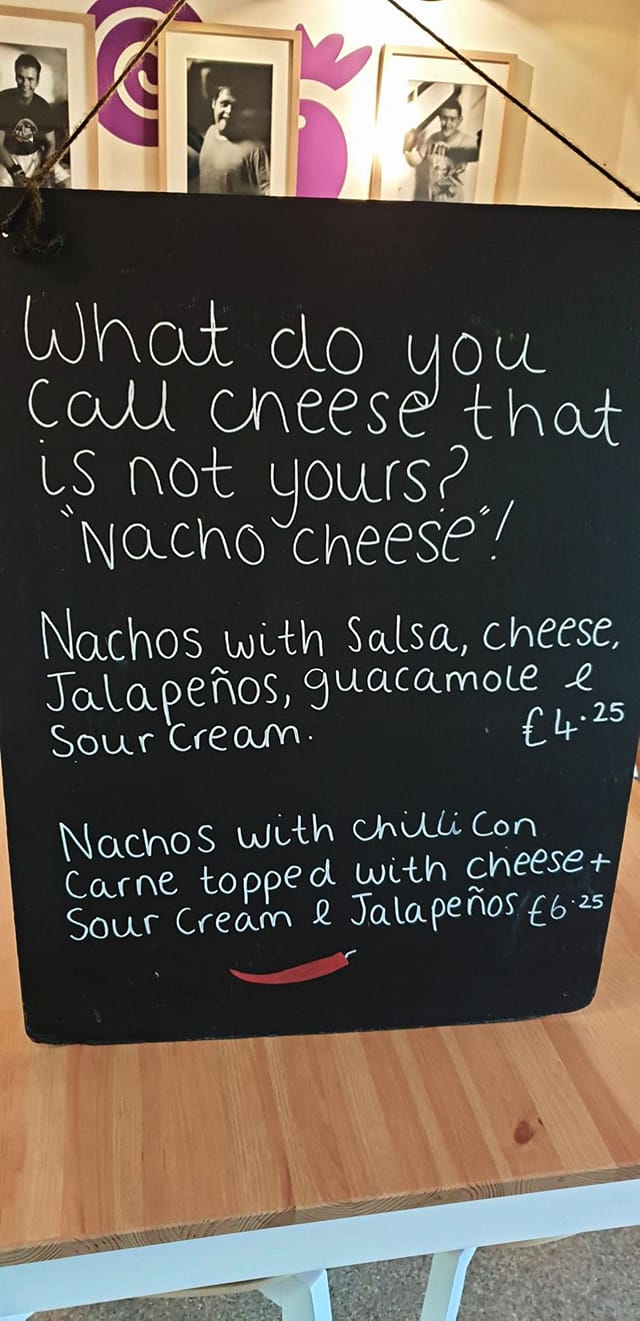 What do you
Call cheese that
is not yours?
"Nacho cheese"!
Nachos with Salsa, cheese,
Jalapeños, guacamole &
Sour Cream. £4.25
Nachos with chilli Con
Carne topped with cheese +
Sour Cream & Jalapeños £6.25